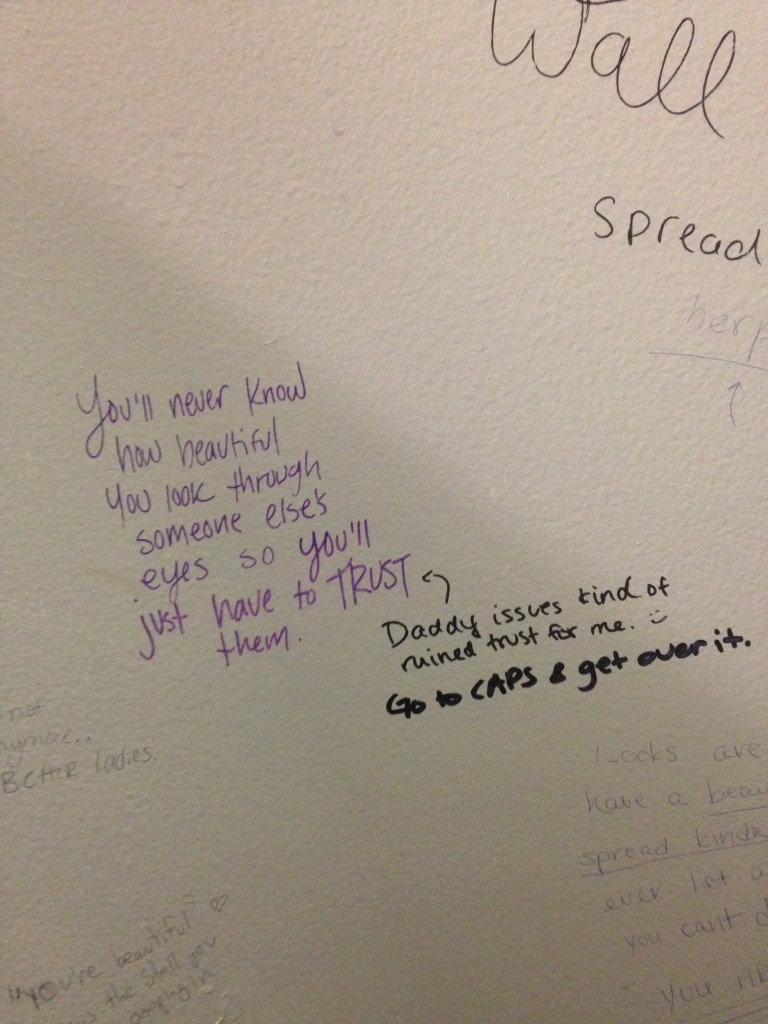 Wall
Spread
You'll never know
how beautiful
you look through
someone else's
eyes so you'll
just have to TRUST
them.
Daddy issues kind of
ruined trust for me.
Go to CAPS & get over it.
Better ladies.
Looks are
have a
spread
ever let
you can't
"You're beautiful
the stall you